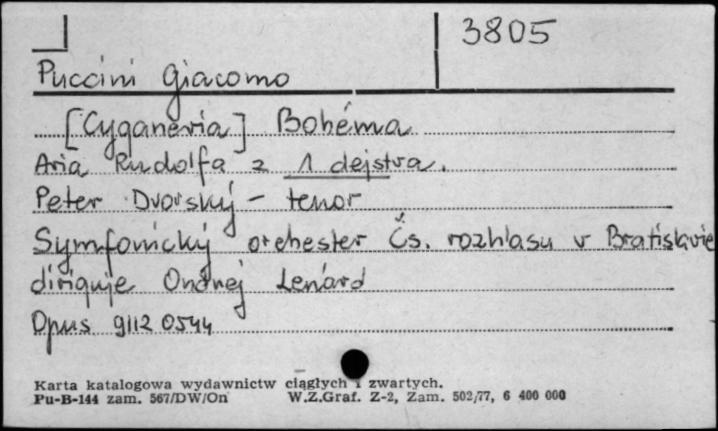 3805
Puccini Giacomo
[Cyganeria] Bohéma
Aria Rudolfa z 1 dejstva.
Peter Dvorský - tenor
Symfonický orchester Čs. rozhlasu v Bratislavie
diriguje Ondrej Lenárd
Opus 9112 0544
Karta katalogowa wydawnictw ciągłych i zwartych.
Pu-B-144 zam. 567/DW/On W.Z.Graf. Z-2, Zam. 502/77, 6 400 000